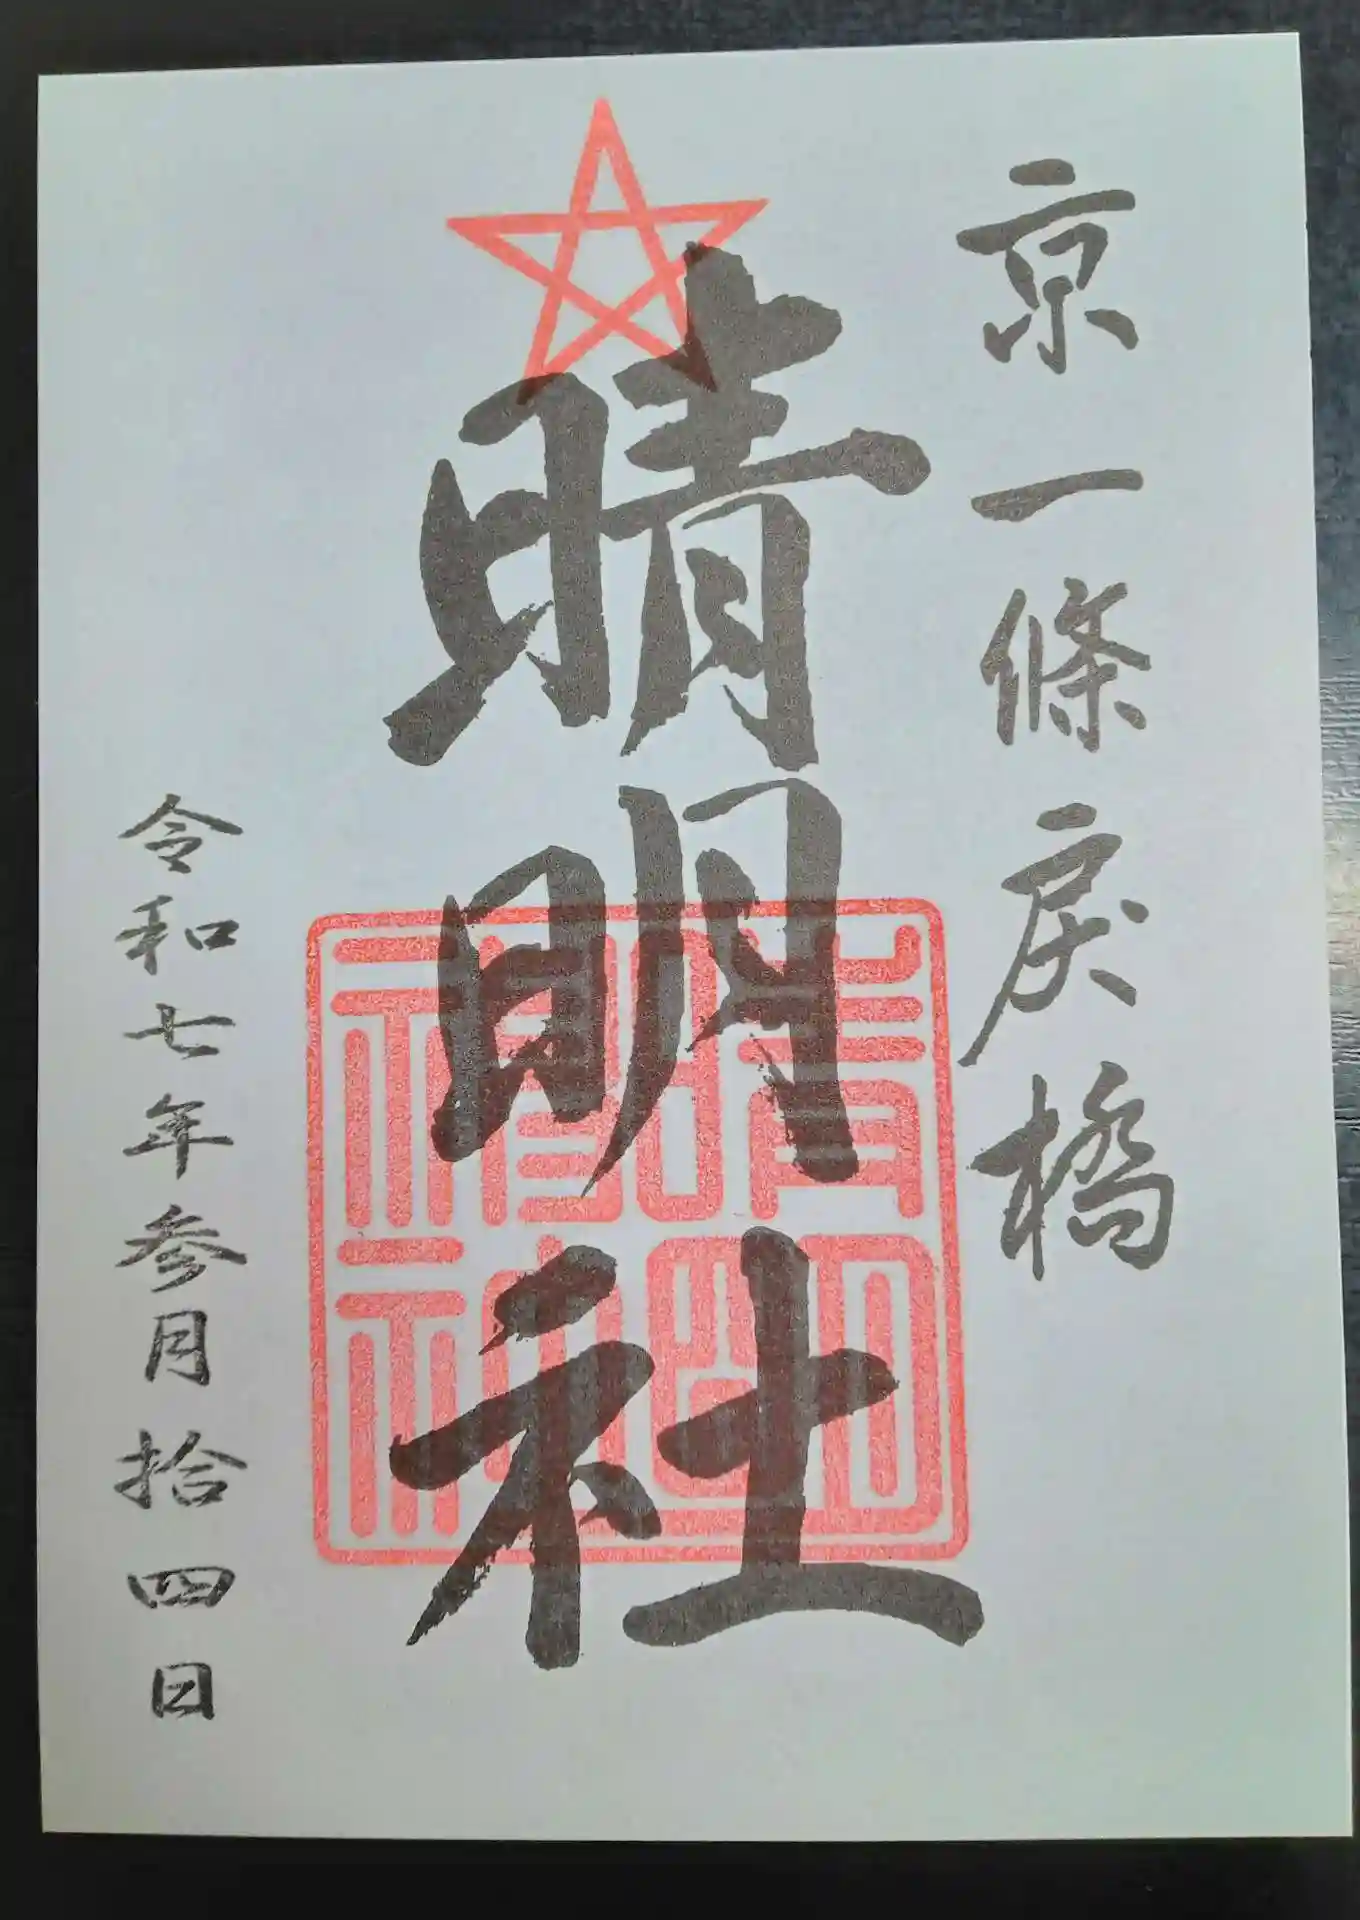 京一條戻橋
晴明社
晴明神社
令和七年参月拾四日